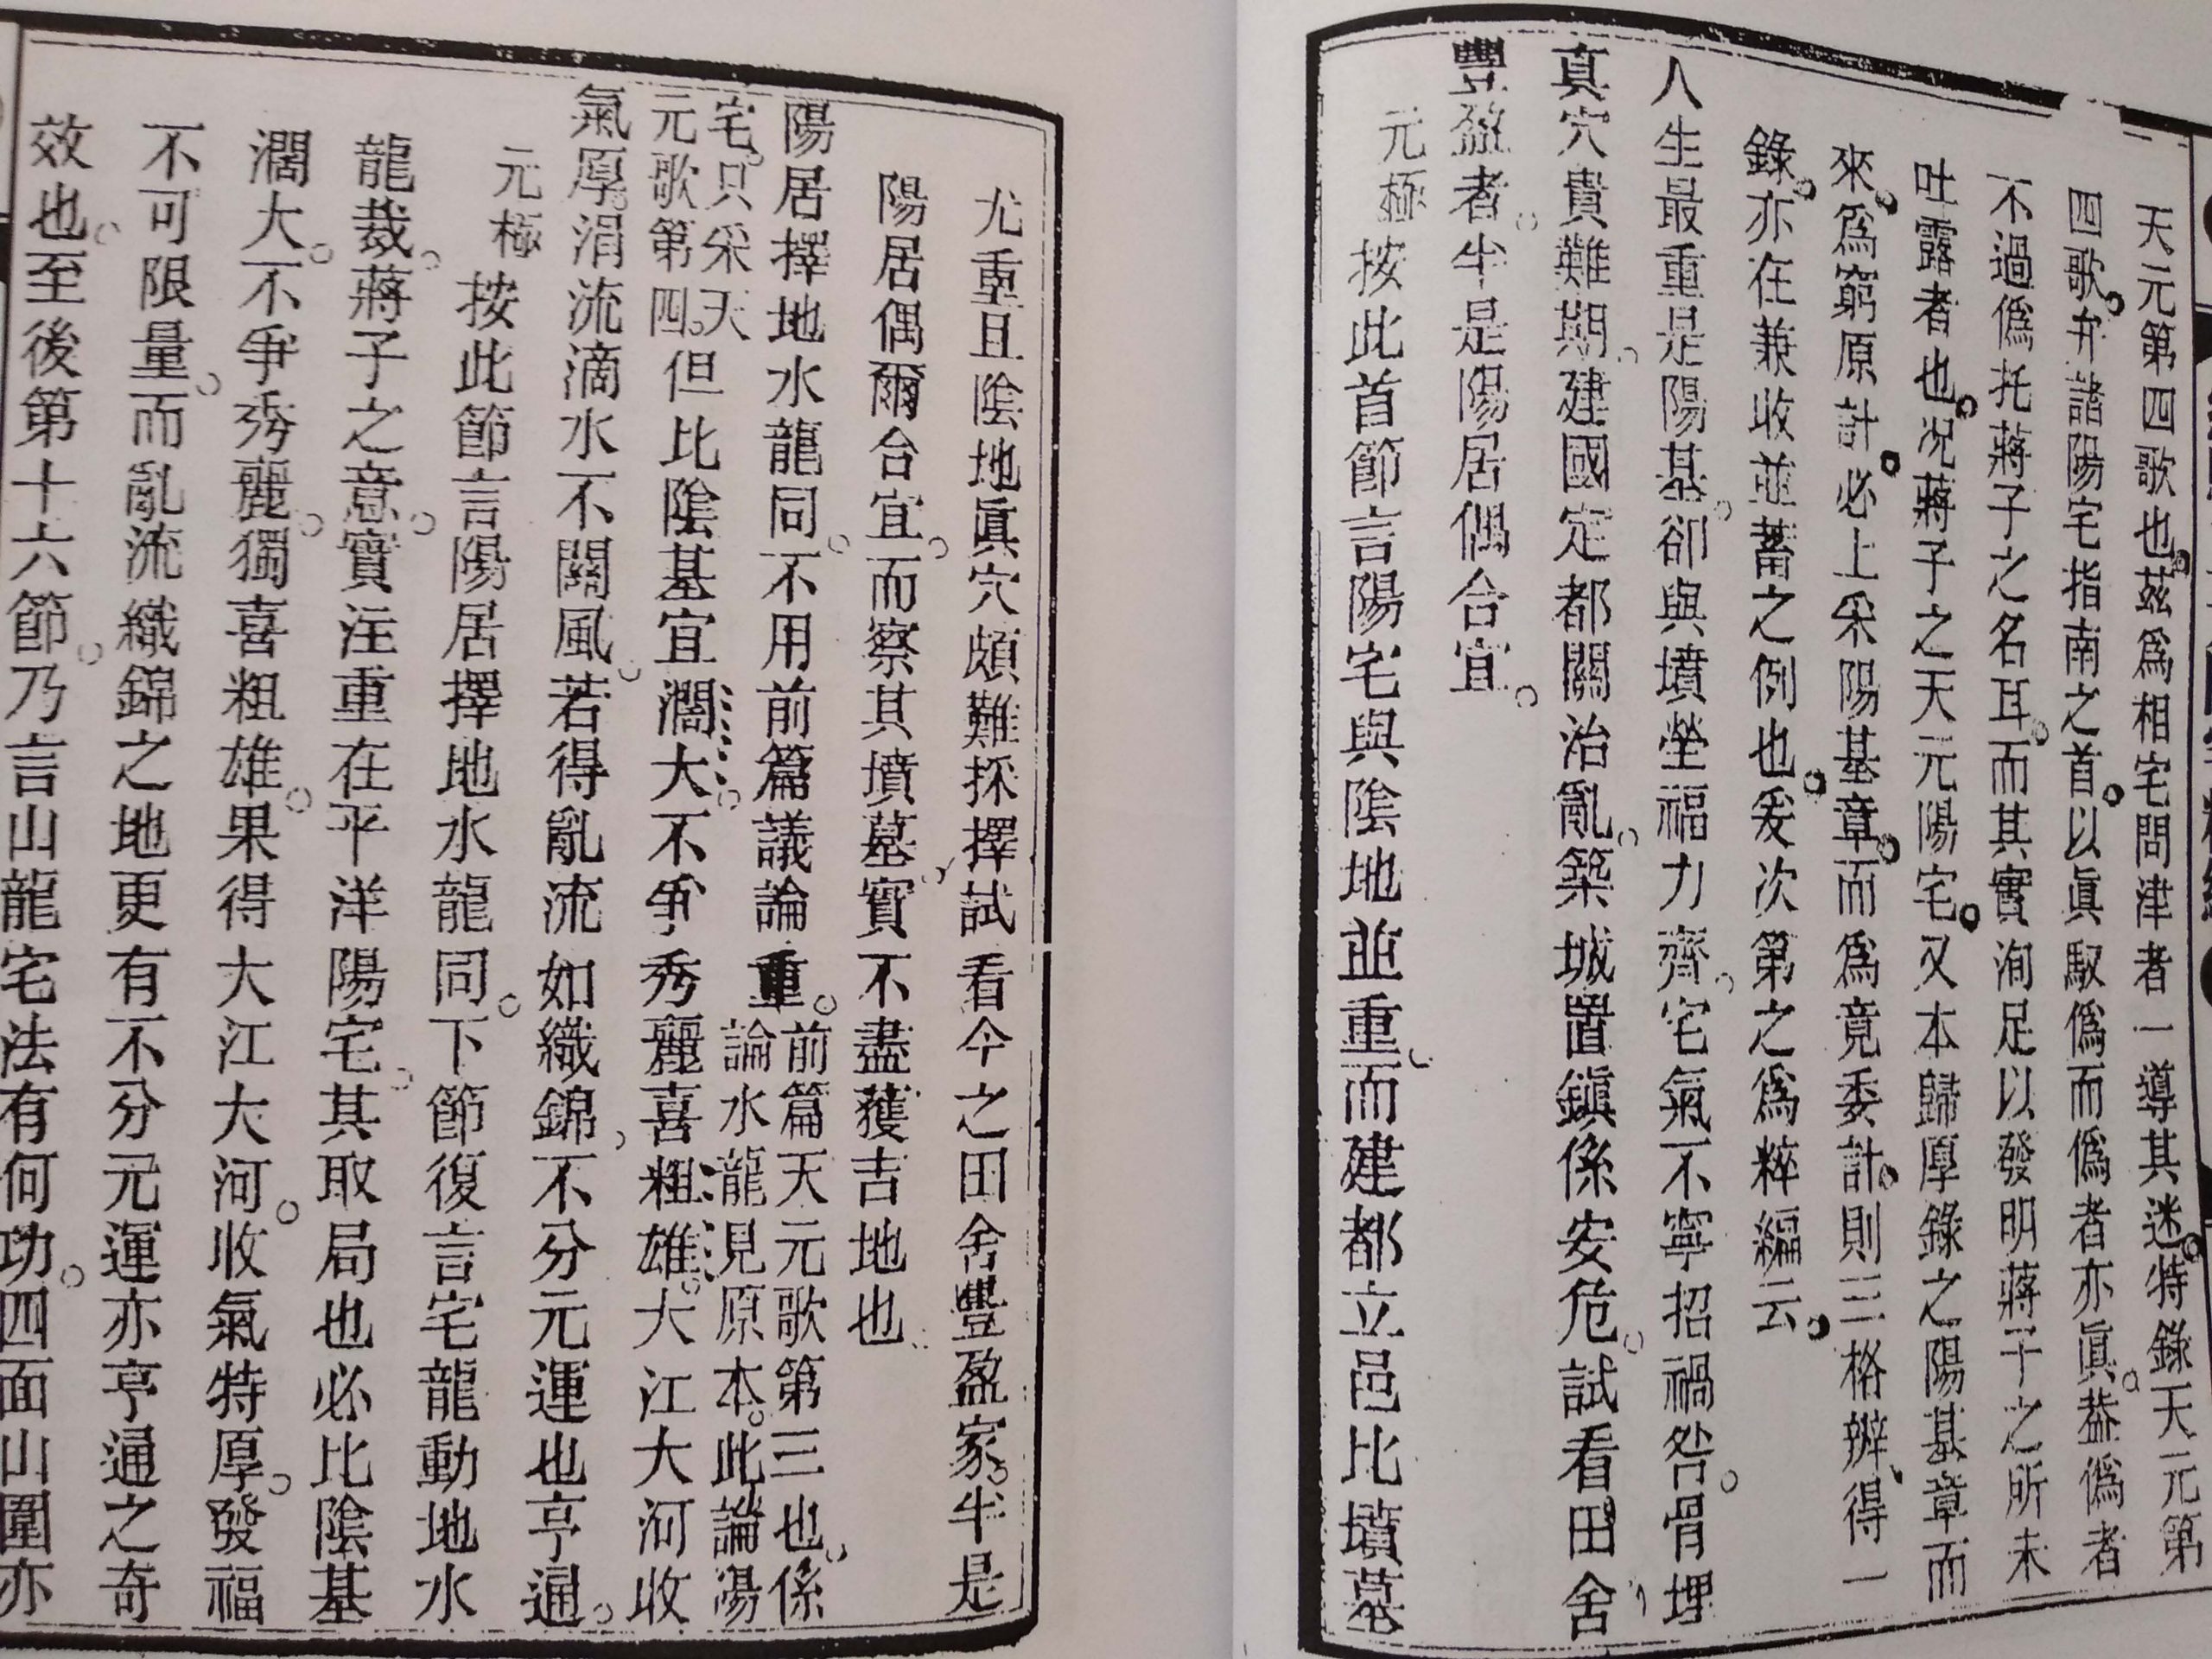 天元第四歌也茲爲相宅問津者一導其迷特錄天元第
四歌弁諸陽宅指南之首以眞馭僞而僞者亦眞葢僞者
不過僞托蔣子之名耳而其實洵足以發明蔣子之所未
吐露者也况蔣子之天元陽宅又本歸厚錄之陽基章而
來爲窮原計必上采陽基章而爲竟委計則三格辨得一
錄亦在兼收並蓄之例也爰次第之爲粹編云
人生最重是陽基卻與墳塋福力齊宅氣不寧招禍咎骨埋
真穴貴難期建國定都關治亂築城置鎭係安危試看田舍
豐盈者半是陽居偶合宜
元極按此首節言陽宅與陰地並重而建都立邑比墳墓
尤重且陰地眞穴頗難採擇試看今之田舍豐盈家半是
陽居偶爾合宜而察其墳墓實不盡獲吉地也
陽居擇地水龍同不用前篇議論重前篇天元歌第三也係
論水龍見原本此論陽
宅只采天
元歌第四但比陰基宜濶大不爭秀麗喜粗雄大江大河收
氣厚涓流滴水不關風若得亂流如織錦不分元運也亨通
元極按此節言陽居擇地水龍同下節復言宅龍動地水
龍裁蔣子之意實注重在平洋陽宅其取局也必比陰基
濶大不爭秀麗獨喜粗雄果得大江大河收氣特厚發福
不可限量而亂流織錦之地更有不分元運亦亨通之奇
效也至後第十六節乃言山龍宅法有何功四面山圍亦